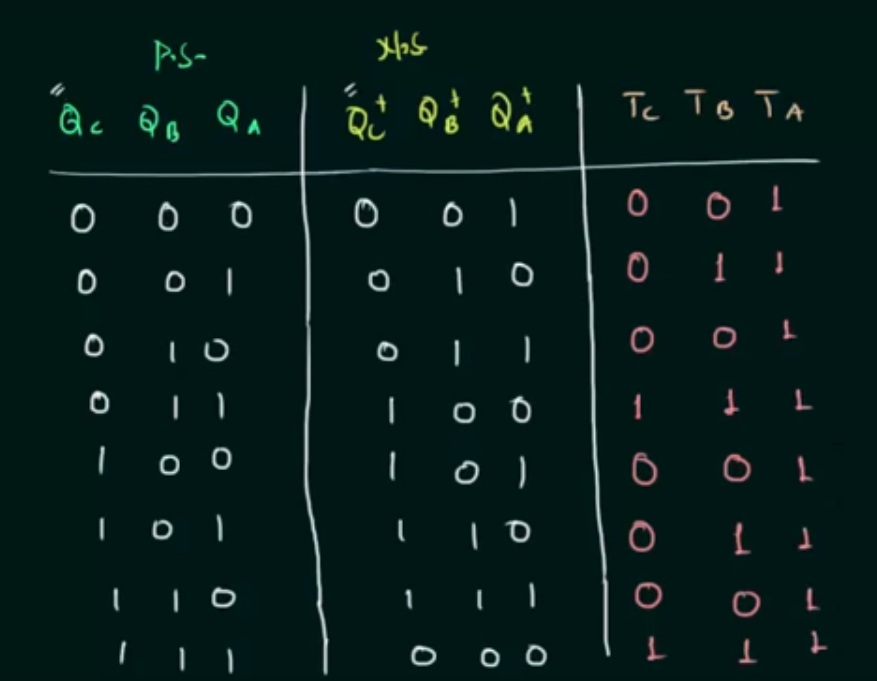 P.S- N.S
Qc QB QA Qc+ QB+ QA+ Tc TB TA
0 0 0 0 0 1 0 0 1
0 0 1 0 1 0 0 1 1
0 1 0 0 1 1 0 0 1
0 1 1 1 0 0 1 1 1
1 0 0 1 0 1 0 0 1
1 0 1 1 1 0 0 1 1
1 1 0 1 1 1 0 0 1
1 1 1 0 0 0 1 1 1